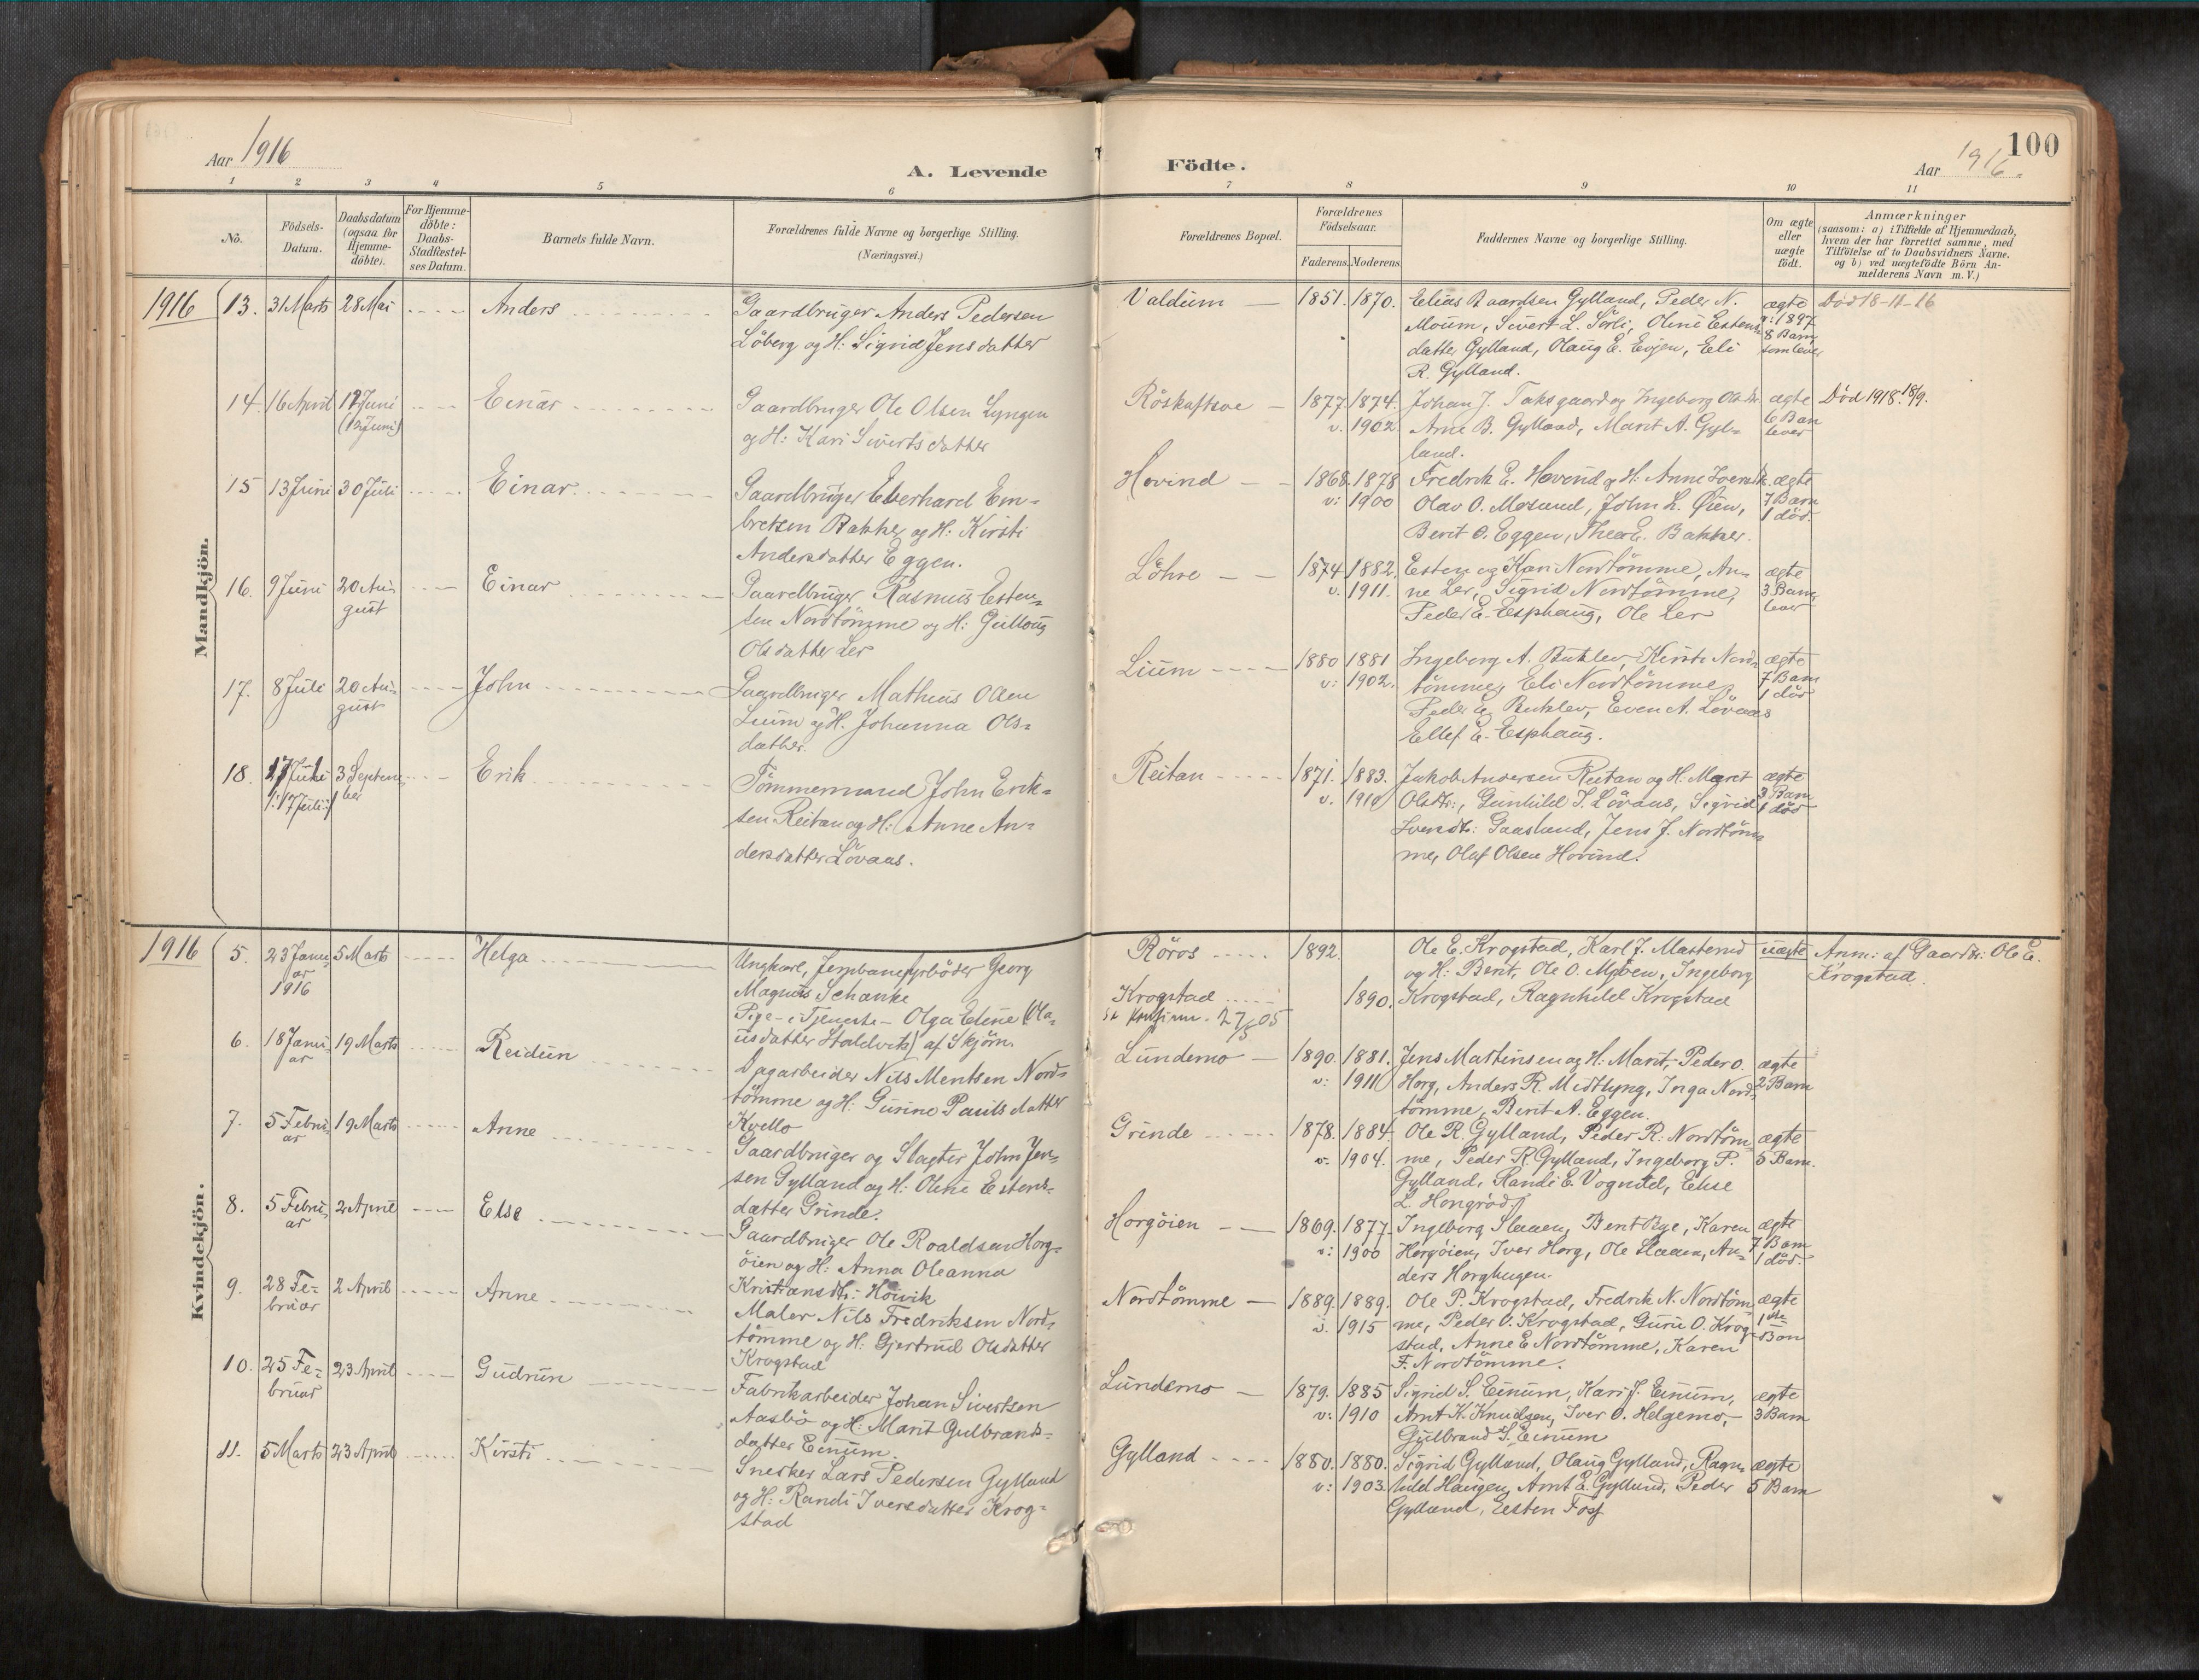 Aar 1916
A. Levende Födte.
Aar 1916.
100
1 2 3 4 5 6 7 8 9 10 11
No.
Födsels-Datum.
Daabsdatum (ogsaa for Hjemme-döbte).
For Hjemme-döbte: Daabs-Stadfæstel-ses Datum.
Barnets fulde Navn.
Forældrenes fulde Navne og borgerlige Stilling. (Næringsvei.)
Forældrenes Bopæl.
Forældrenes Födselsaar.
Faderens. Moderens.
Faddernes Navne og borgerlige Stilling.
Om ægte eller uægte født.
Anmærkninger
(saasom: a) i Tilfælde af Hjemmedaab, hvem der har forrettet samme, med Tilföielse af to Daabsvidners Navne. og b) ved uægtefödte Börn An-melderens Navn m. V.)
Mandkjön.
1916 13. 31 Marts 28 Mai Anders
Gaardbruger Anders Pedersen
Löberg og H: Sigrid Jensdatter
Valdum 1851. 1870.
Elias Baardsen Gylland, Peder N.
Moum, Sivert L. Sørli, Oline Estens
datter Gylland, Olaug E. Evjen, Eli
R. Gylland.
ægte
v: 1897
8 Barn
som lever
Död 18-11-16
14. 16 April 12 Juni (12 Juni) Einar
Gaardbruger Ole Olsen Lyngen
og H: Kari Sivertsdatter
Röskaftsoe 1877. 1874.
v. 1902.
Johan J. Foksgaard og Ingeborg Olsdtr.
Arne B. Gylland, Marit A. Gyl-
land.
ægte
6 Barn
lever
Död 1918. 18/9.
15 13 Juni 30 Juli Einar
Gaardbruger Eberhard Em-
bretsen Bakke og H: Kirsti
Andersdatter Eggen.
Hovind 1868. 1878
v: 1900
Fredrik E. Hovind og H: Anne
Olav O. Mosund, John L. Øien,
Berit O. Eggen, Thea E. Bakker.
ægte
7 Barn
1 död.
16. 9 Juni 20 Au-
gust
Einar
Gaardbruger Rasmus Esten-
sen Nordtömme og H: Gulloug
Olsdatter Ler
Löhre 1874 1882.
v. 1911.
Esten og Kari Nordtömme, An-
ne Ler, Sigrid Nordtömme,
Peder E. Esphaug, Ole Ler
ægte
3 Barn
lever
17. 8 Juli 20 Au-
gust
John
Gaardbruger Mathias Olsen
Lium og H. Johanna Ols-
datter.
Lium 1880 1881
v: 1902.
Ingeborg A. Buklev, Kirsti Nord-
tömme, Eli Nordtömme,
Peder Buklev, Even A. Lövaas
Ellef E. Esphaug.
ægte
7 Barn
1 död
18. 17 Juli 3 Septem-
ber
/: 17 Juli :/
Erik
Tömmermand John Erik-
sen Reitan og H: Anne An-
dersdatter Lövaas.
Reitan 1871. 1883.
v. 1910
Jakob Andersen Reitan og H. Maret
Olsdtr:, Gunhild J. Lövaas, Sigrid
Svendtr: Gaasland, Jens J. Nordtöm-
me, Olaf Olsen Hovind.
ægte
3 Barn
1 död
Kvindekjön.
1916 5. 23 Janu-
ar
1916
5 Marts Helga
Ungkarl, Jernbanefyrböder Georg
Magnus Schanke
Pige - i Tjeneste - Olga Eline (Ola-
usdatter Staldvik) af Skjörn.
Röros 1892.
Krogstad 1890.
27/5 05
Ole E. Krogstad, Karl J. Masterud
og H: Berit, Ole O. Myöen, Ingeborg
Krogstad, Ragnhild Krogstad
uægte
Anm: af Gaardbr: Ole E.
Krogstad.
6. 18 Janu-
ar
19 Marts Reidun
Dagarbeider Nils Mentsen Nord-
tömme og H: Gurine Paulsdatter
Kvello
Lundemo 1890. 1881.
v: 1911
Jens Martinsen og H: Marit, Peder O.
Horg, Anders R. Midtlyng, Inga Nord-
tömme, Berit A. Eggen.
ægte
2 Barn
7. 5 Febru-
ar
19 Marts Anne
Gaardbruger og Slagter John Jen-
sen Gylland og H: Oline Estens-
datter Grinde.
Grinde 1878. 1884.
v. 1904.
Ole R. Gylland, Peder R. Nordtöm-
me, Peder R. Gylland, Ingeborg P.
Gylland, Randi E. Vognild, Else
L. Hongröd
ægte
5 Barn.
8. 5 Febru-
ar
2 April Else
Gaardbruger Ole Roaldsen Horg-
öien og H: Anna Oleanna
Kristiansdtr: Hövik
Horgöien 1869. 1877.
v: 1900
Ingeborg Slaaen, Berit Bye, Karen
Horgöien, Iver Horg, Ole Slaaen, An-
ders Horghugen.
ægte
7 Barn
1 död.
9. 28 Fe-
bruar
2 April Anne
Maler Nils Fredriksen Nord-
tömme og H: Gjertrud Olsdatter
Krogstad
Nordtömme 1889. 1889.
v. 1915
Ole P. Krogstad, Fredrik N. Nordtöm-
me, Peder O. Krogstad, Guru O. Krog-
stad, Anne E Nordtömme, Karen
F. Nordtömme.
ægte
1ste
Barn
10. 25 Fe-
bruar
23 April Gudrun
Fabrikarbeider Johan Sivertsen
Aasbö og H: Marit Gulbrands-
datter Einum.
Lundemo 1879. 1885
v: 1910
Sigrid S. Einum, Kari J. Einum,
Arnt K. Knudsen, Iver O. Helgemo,
Gulbrand S. Einum
ægte
3 Barn
11. 5 Marts 23 April Kirsti
Snekker Lars Pedersen Gylland
og H: Randi Iversdatter Krog-
stad
Gylland 1880. 1880.
v: 1903
Sigrid Gylland, Olaug Gylland, Ragn-
hild Haugen, Arnt L. Gylland, Peder
Gylland, Esten Foss
ægte
5 Barn